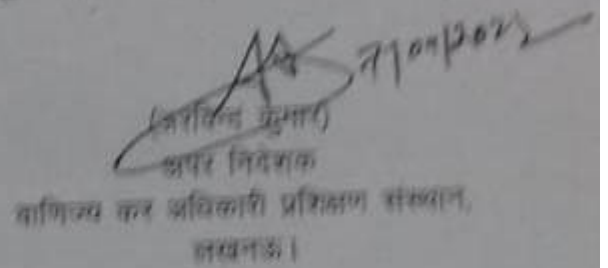 (अरविन्द कुमार)
अपर निदेशक
वाणिज्य कर अधिकारी प्रशिक्षण संस्थान,
लखनऊ।